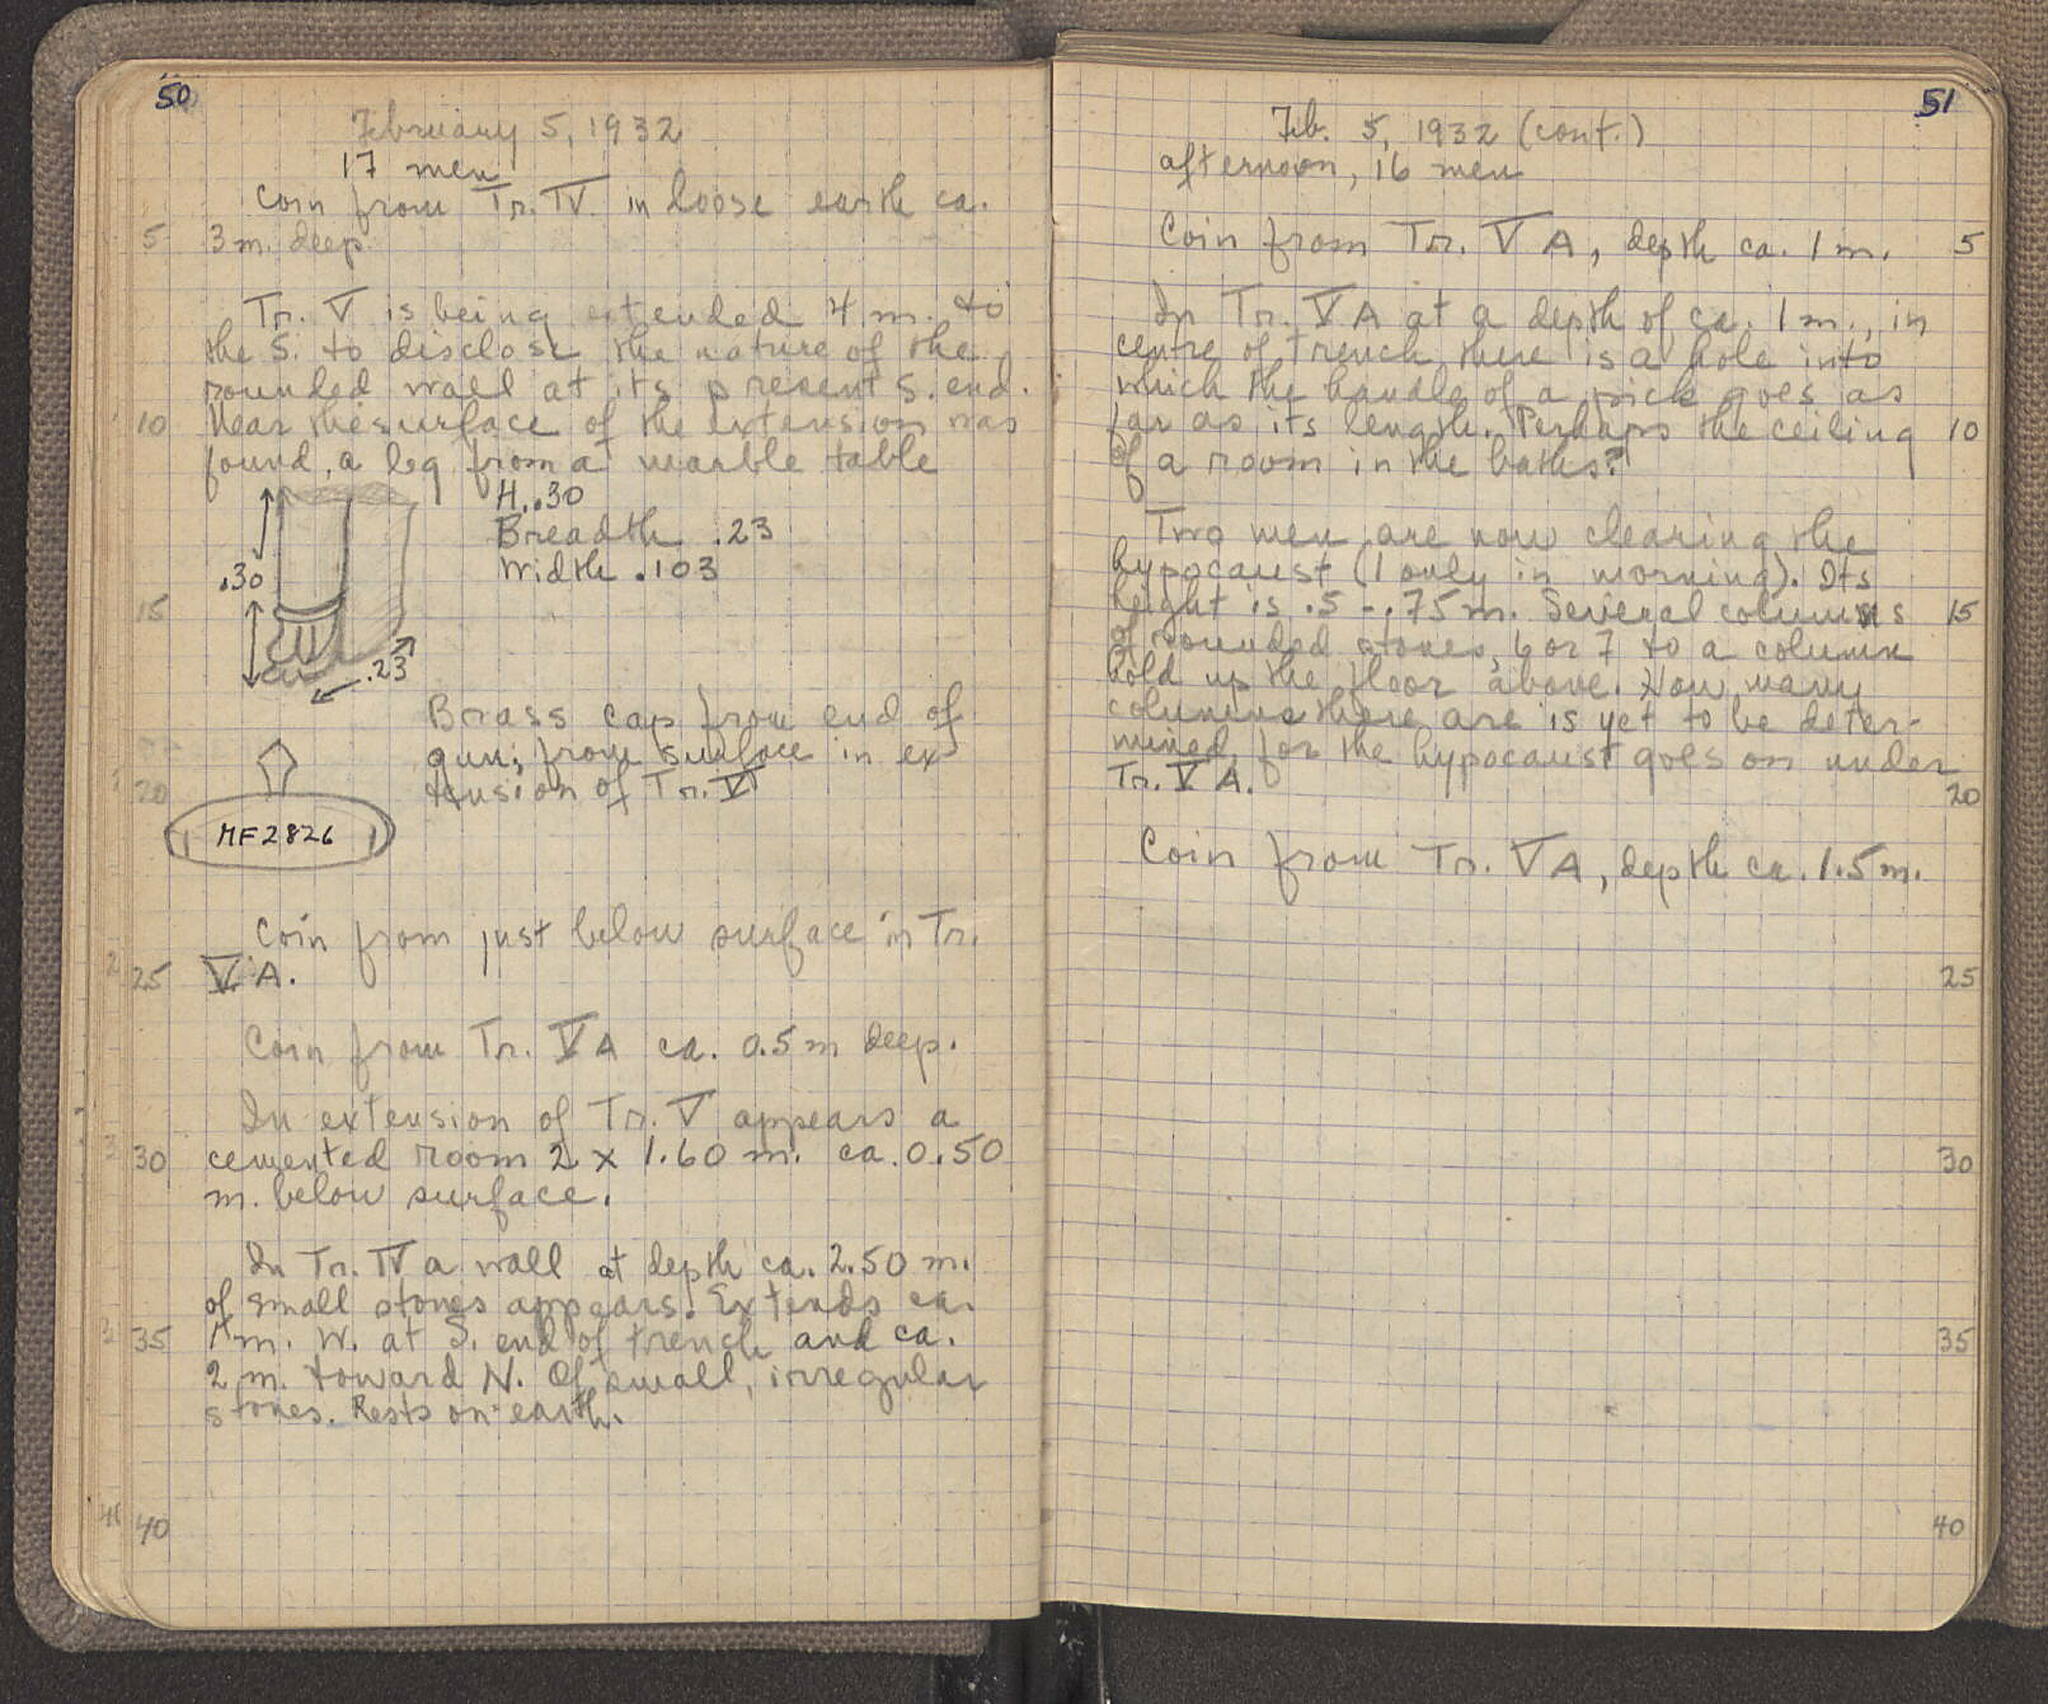 50
February 5, 1932
17 men
Coin from Tr. IV in loose earth ca.
5 3 m. deep
Tr. V is being extended 4 m. to
the S. to disclose the nature of the
rounded wall at its present S. end.
10 Near the surface of the extension was
found, a leg from a marble table
H. .30
Breadth .23
.30
Width .103
15
.23
Brass cap from end of
gun; from surface in ex
20 tension of Tr. V
MF2826
Coin from just below surface in Tr.
25 V A.
Coin from Tr. V A ca. 0.5 m deep.
In extension of Tr. V appears a
30 cemented room 2 x 1.60 m. ca. 0.50
m. below surface.
In Tr. IV a wall at depth ca. 2.50 m.
of small stones appears. Extends ca.
35 1 m. W. at S. end of trench and ca.
2 m. toward N. Of small, irregular
stones. Rests on earth.
40
51
Feb. 5, 1932 (cont.)
afternoon, 16 men
Coin from Tr. V A, depth ca. 1 m. 5
In Tr. V A at a depth of ca. 1 m., in
centre of trench there is a hole into
which the handle of a pick goes as
far as its length. Perhaps the ceiling 10
of a room in the baths?
Two men are now clearing the
hypocaust (1 only in morning). Its
height is .5 - .75 m. Several columns 15
of rounded stones, 6 or 7 to a column
hold up the floor above. How many
columns there are is yet to be deter-
mined, for the hypocaust goes on under
Tr. V A. 20
Coin from Tr. V A, depth ca. 1.5 m.
25
30
35
40